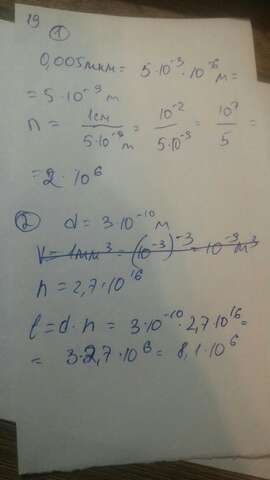 19
①
0,005мкм = 5·10⁻³·10⁻⁶ м =
= 5·10⁻⁹ м
n = 1см / 5·10⁻⁹ м = 10⁻² / 5·10⁻⁹ = 10⁷ / 5 =
= 2·10⁶
② d = 3·10⁻¹⁰ м
V = 1мм³ = (10⁻³)⁻³ = 10⁻⁹ м³
n = 2,7·10¹⁶
l = d·n = 3·10⁻¹⁰·2,7·10¹⁶ =
= 3·2,7·10⁶ = 8,1·10⁶